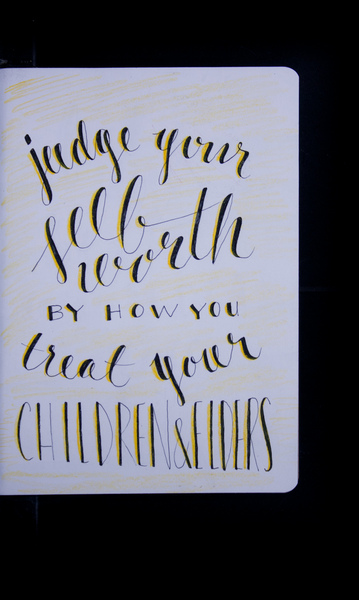 judge your
self
worth
BY HOW YOU
treat your
CHILDREN & ELDERS